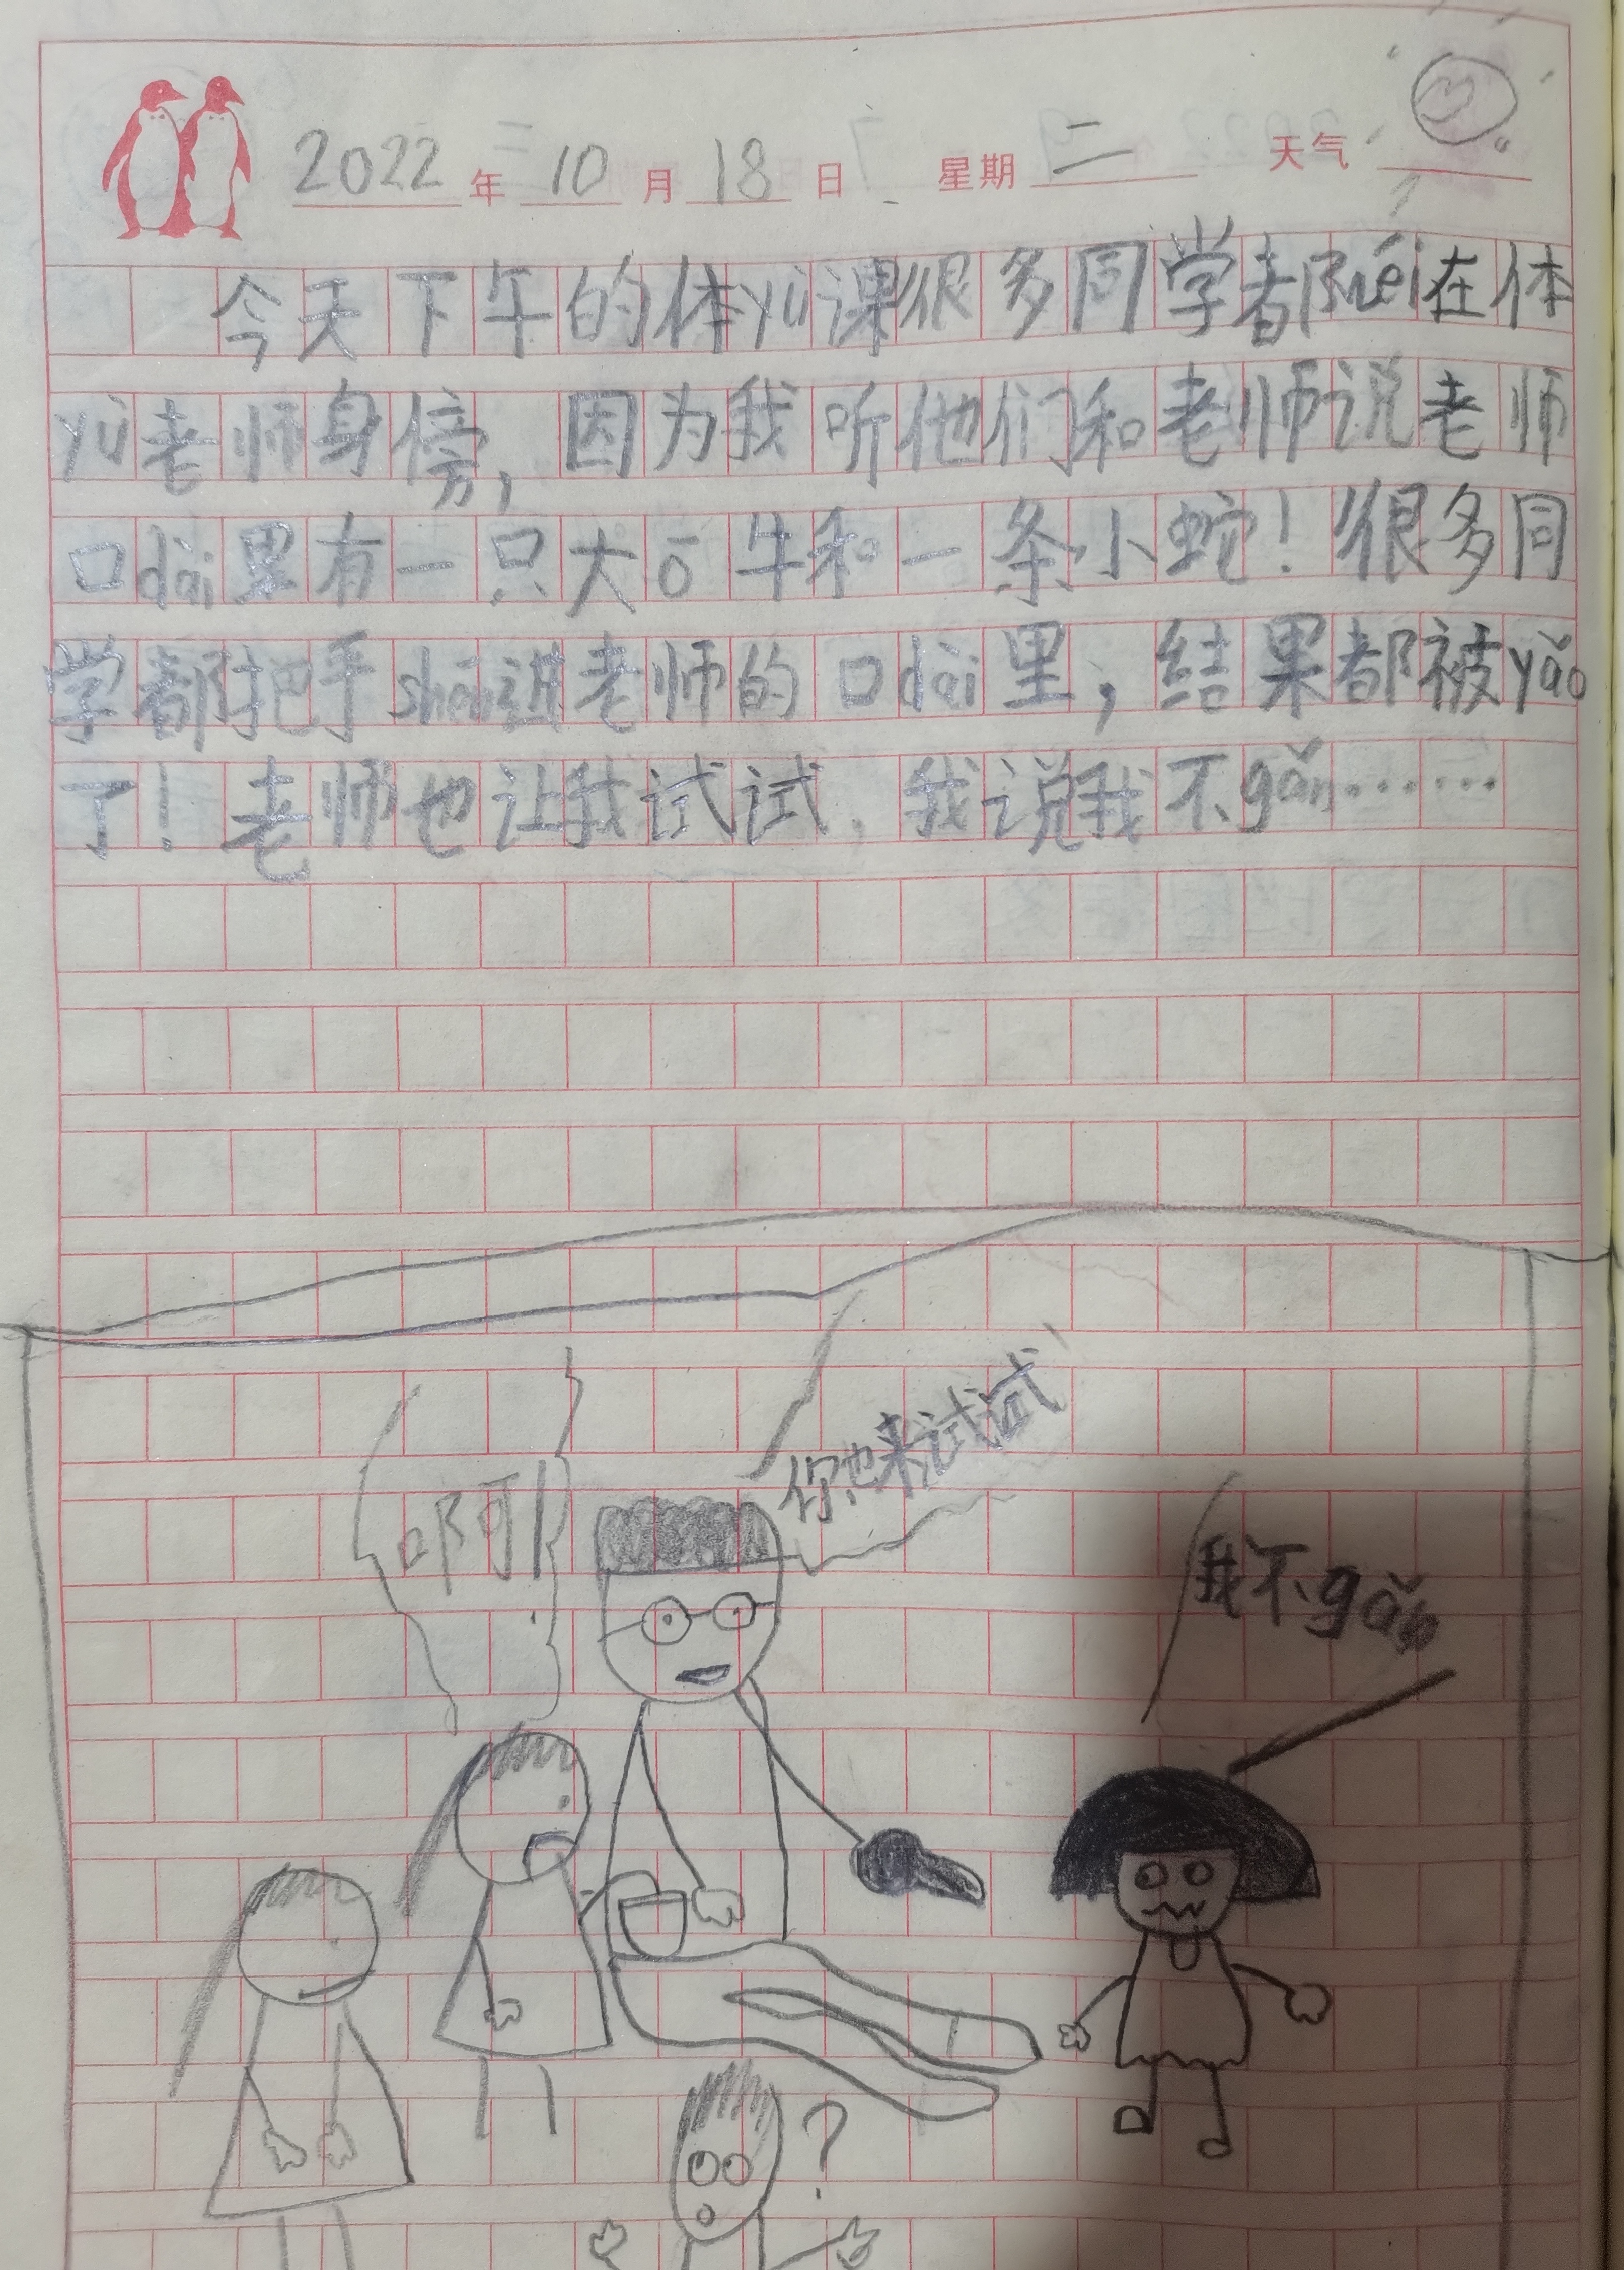 2022年10月18日 星期二 天气
今天下午的体yù课很多同学都wéi在体
yù老师身傍，因为我听他们和老师说老师
口dài里有一只大ō牛和一条小蛇！很多同
学都把手shēn进老师的口dài里，结果都被yǎo
了！老师也让我试试，我说我不gǎn……
你也来试试
啊
我不gǎn
？